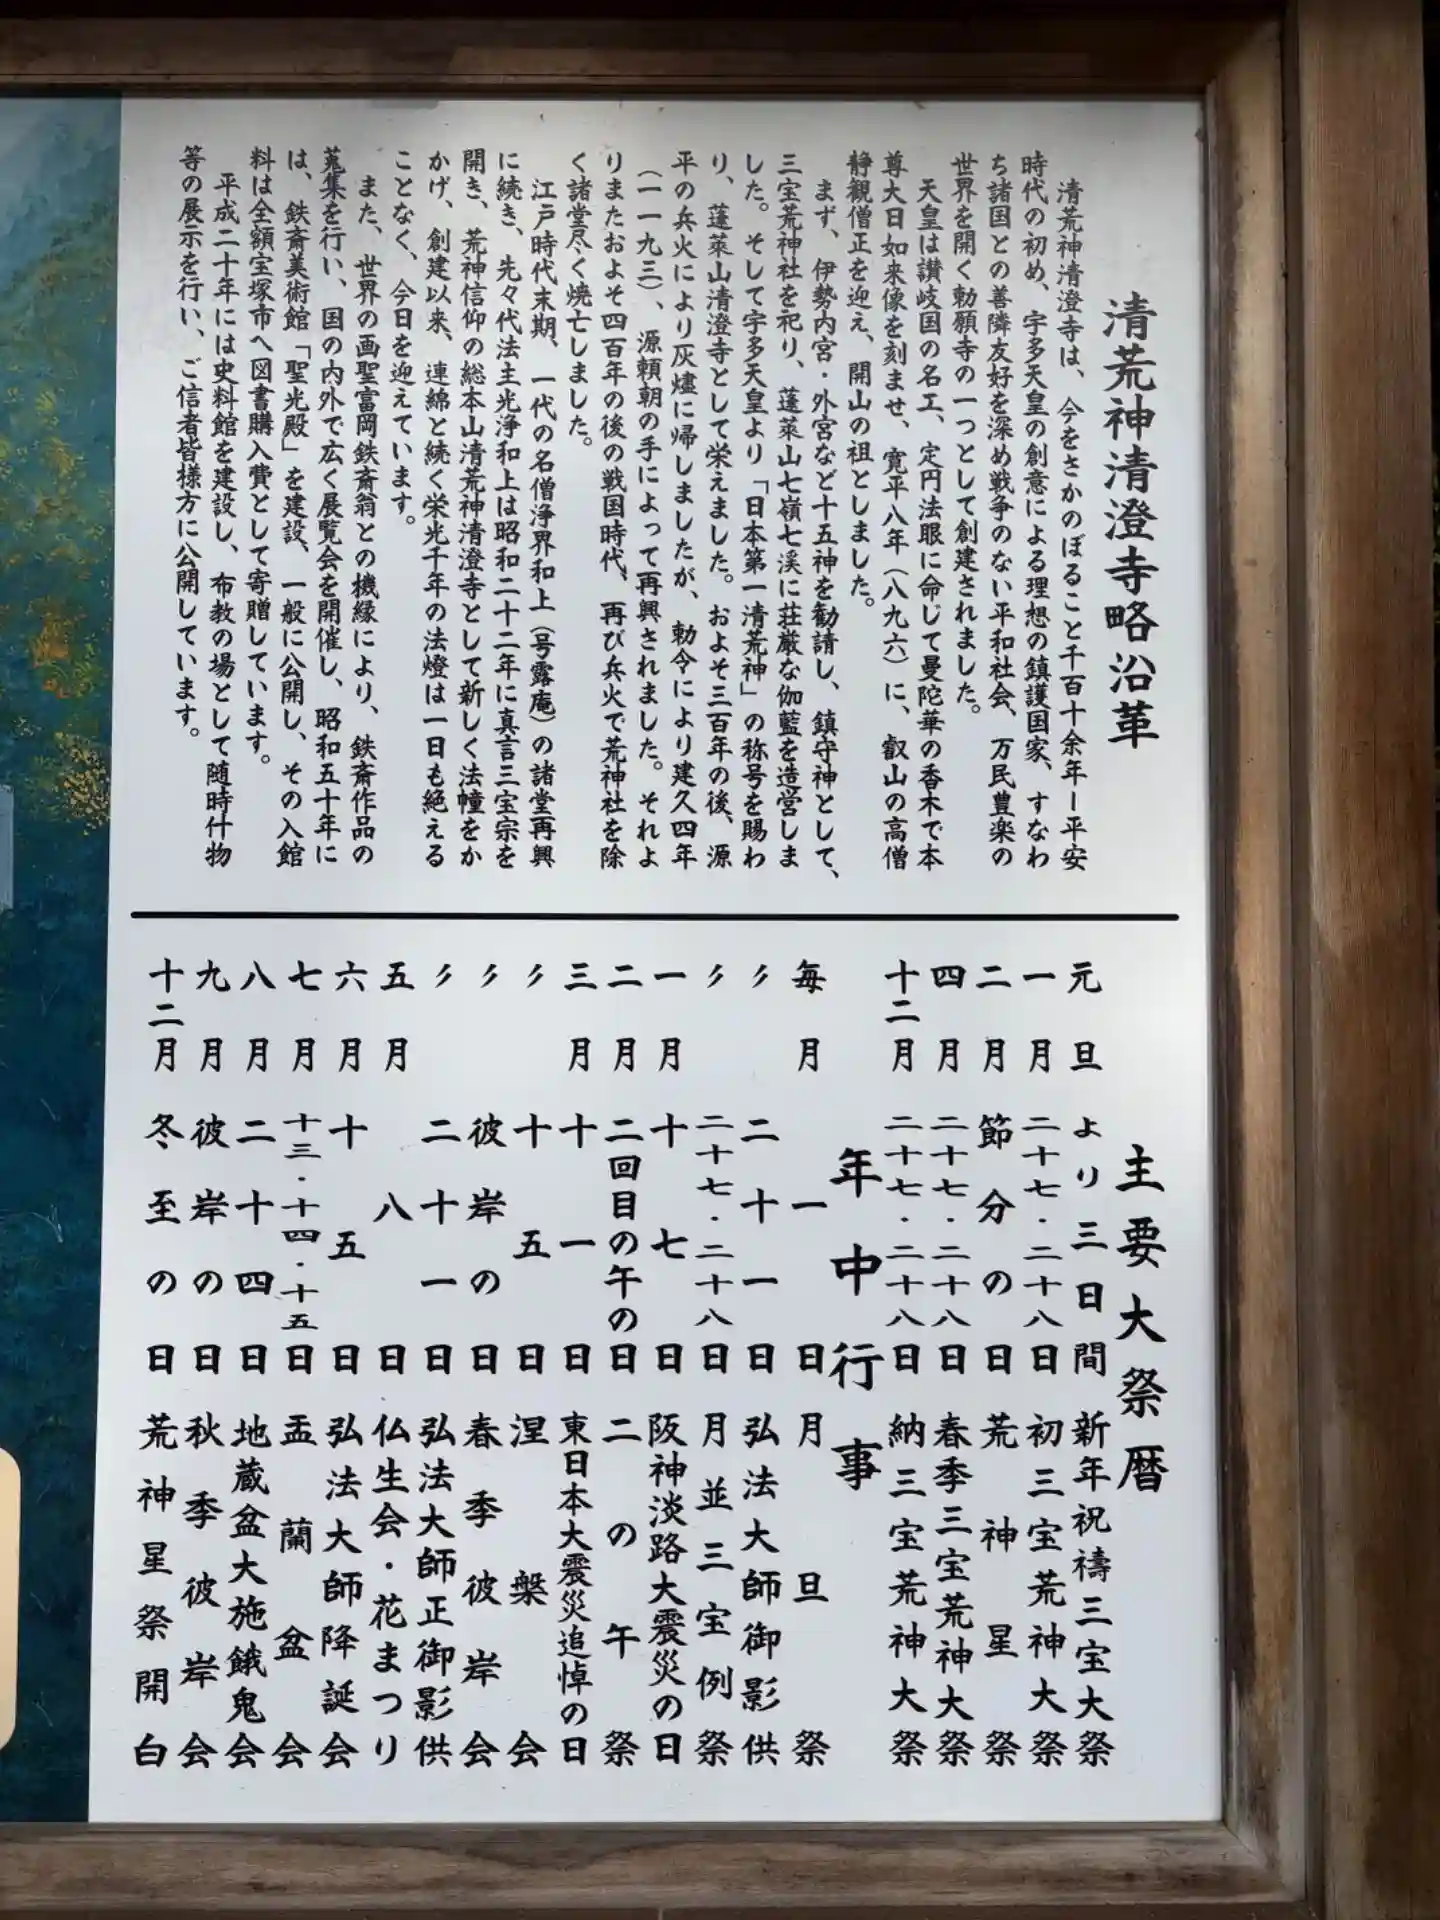 清荒神清澄寺略沿革
清荒神清澄寺は、今をさかのぼること千百十余年ー平安
時代の初め、宇多天皇の創意による理想の鎮護国家、すなわ
ち諸国との善隣友好を深め戦争のない平和社会、万民豊楽の
世界を開く勅願寺の一つとして創建されました。
天皇は讃岐国の名工、定円法眼に命じて曼陀華の香木で本
尊大日如来像を刻ませ、寛平八年（八九六）に、叡山の高僧
静観僧正を迎え、開山の祖としました。
まず、伊勢内宮・外宮など十五神を勧請し、鎮守神として、
三宝荒神社を祀り、蓬莱山七嶺七渓に荘厳な伽藍を造営しま
した。そして宇多天皇より「日本第一清荒神」の称号を賜わ
り、蓬莱山清澄寺として栄えました。およそ三百年の後、源
平の兵火により灰燼に帰しましたが、勅令により建久四年
（一一九三）、源頼朝の手によって再興されました。それよ
りまたおよそ四百年の後の戦国時代、再び兵火で荒神社を除
く諸堂尽く焼亡しました。
江戸時代末期、一代の名僧浄界和上（号露庵）の諸堂再興
に続き、先々代法主光浄和上は昭和二十二年に真言三宝宗を
開き、荒神信仰の総本山清荒神清澄寺として新しく法幢をか
かげ、創建以来、連綿と続く栄光千年の法燈は一日も絶える
ことなく、今日を迎えています。
また、世界の画聖富岡鉄斎翁との機縁により、鉄斎作品の
蒐集を行い、国の内外で広く展覧会を開催し、昭和五十年に
は、鉄斎美術館「聖光殿」を建設、一般に公開し、その入館
料は全額宝塚市へ図書購入費として寄贈しています。
平成二十年には史料館を建設し、布教の場として随時什物
等の展示を行い、ご信者皆様方に公開しています。
主要大祭暦
元旦より三日間 新年祝禱三宝大祭
一月二十七・二十八日 初三宝荒神大祭
二月節分の日 荒神星祭
四月二十七・二十八日 春季三宝荒神大祭
十二月二十七・二十八日 納三宝荒神大祭
年中行事
毎月一日 月旦祭
〃二十一日 弘法大師御影供
〃二十七・二十八日 月並三宝例祭
一月十七日 阪神淡路大震災の日
二月二回目の午の日 二の午祭
三月十一日 東日本大震災追悼の日
〃十五日 涅槃会
〃彼岸の日 春季彼岸会
〃二十一日 弘法大師正御影供
五月八日 仏生会・花まつり
六月十五日 弘法大師降誕会
七月十三・十四・十五日 盂蘭盆会
八月二十四日 地蔵盆大施餓鬼会
九月彼岸の日 秋季彼岸会
十二月冬至の日 荒神星祭開白